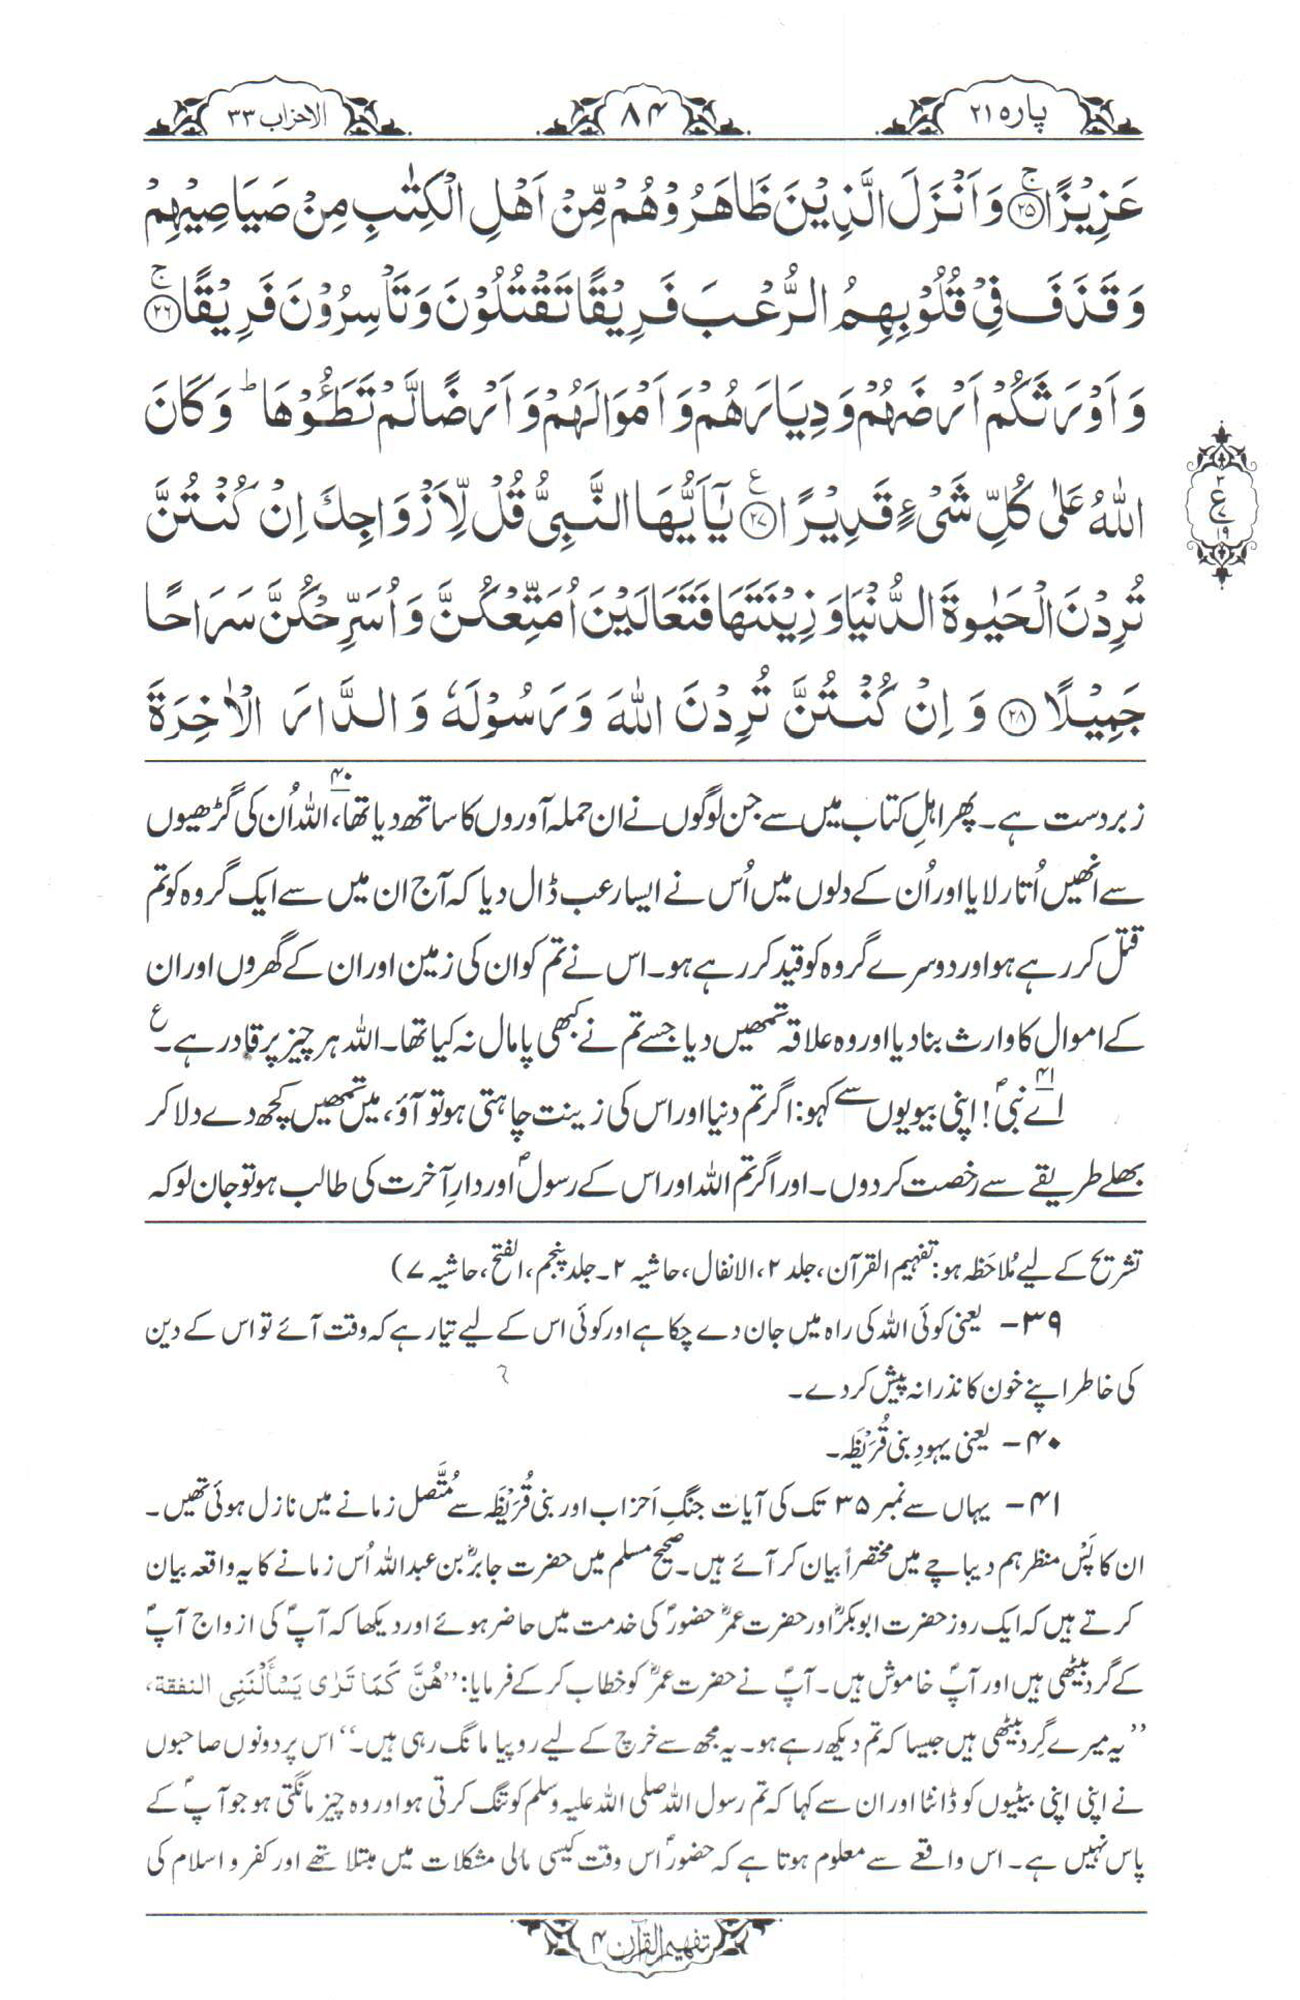 پارہ ۲۱
۸۴
الاحزاب ۳۳
عَزِيْزًا ۚ‏﴿۲۵﴾ وَاَنْزَلَ الَّذِيْنَ ظَاهَرُوْهُمْ مِّنْ اَهْلِ الْكِتٰبِ مِنْ صَيَاصِيْهِمْ
وَقَذَفَ فِىْ قُلُوْبِهِمُ الرُّعْبَ فَرِيْقًا تَقْتُلُوْنَ وَتَاْسِرُوْنَ فَرِيْقًا ۚ‏﴿۲۶﴾
وَاَوْرَثَكُمْ اَرْضَهُمْ وَدِيَارَهُمْ وَاَمْوَالَهُمْ وَاَرْضًا لَّمْ تَطَـُٔوْهَا ؕ وَكَانَ
اللّٰهُ عَلٰى كُلِّ شَىْءٍ قَدِيْرًا ‏﴿۲۷﴾ ع يٰۤاَيُّهَا النَّبِىُّ قُلْ لِّاَزْوَاجِكَ اِنْ كُنْتُنَّ
۳ ع ۷ ۱۹
تُرِدْنَ الْحَيٰوةَ الدُّنْيَا وَزِيْنَتَهَا فَتَعَالَيْنَ اُمَتِّعْكُنَّ وَاُسَرِّحْكُنَّ سَرَاحًا
جَمِيْلًا ‏﴿۲۸﴾ وَاِنْ كُنْتُنَّ تُرِدْنَ اللّٰهَ وَرَسُوْلَهٗ وَالدَّارَ الْاٰخِرَةَ
زبردست ہے۔ پھر اہلِ کتاب میں سے جن لوگوں نے ان حملہ آوروں کا ساتھ دیا تھا،۴۰ اللہ اُن کی گڑھیوں
سے انھیں اُتار لایا اور اُن کے دلوں میں اُس نے ایسا رعب ڈال دیا کہ آج ان میں سے ایک گروہ کو تم
قتل کر رہے ہو اور دوسرے گروہ کو قید کر رہے ہو۔ اس نے تم کو ان کی زمین اور ان کے گھروں اور ان
کے اموال کا وارث بنا دیا اور وہ علاقہ تمھیں دیا جسے تم نے کبھی پامال نہ کیا تھا۔ اللہ ہر چیز پر قادر ہے۔ ع
۴۱ اے نبیؐ! اپنی بیویوں سے کہو: اگر تم دنیا اور اس کی زینت چاہتی ہو تو آؤ، میں تمھیں کچھ دے دلا کر
بھلے طریقے سے رخصت کر دوں۔ اور اگر تم اللہ اور اس کے رسولؐ اور دارِ آخرت کی طالب ہو تو جان لو کہ
تشریح کے لیے مُلاحَظہ ہو: تفہیم القرآن، جلد ۲، الانفال، حاشیہ ۲۔ جلد پنجم، الفتح، حاشیہ ۷)
۳۹ – یعنی کوئی اللہ کی راہ میں جان دے چکا ہے اور کوئی اس کے لیے تیار ہے کہ وقت آئے تو اس کے دین
کی خاطر اپنے خون کا نذرانہ پیش کر دے۔
۴۰ – یعنی یہودِ بنی قُرَیْظَہ۔
۴۱ – یہاں سے نمبر ۳۵ تک کی آیات جنگِ اَحزاب اور بنی قُرَیْظَہ سے مُتَّصل زمانے میں نازل ہوئی تھیں۔
ان کا پَس منظر ہم دیباچے میں مختصراً بیان کر آئے ہیں۔ صحیح مسلم میں حضرت جابرؓ بن عبداللہ اُس زمانے کا یہ واقعہ بیان
کرتے ہیں کہ ایک روز حضرت ابوبکرؓ اور حضرت عمرؓ حضورؐ کی خدمت میں حاضر ہوئے اور دیکھا کہ آپؐ کی ازواج آپؐ
کے گرد بیٹھی ہیں اور آپؐ خاموش ہیں۔ آپؐ نے حضرت عمرؓ کو خطاب کر کے فرمایا: ’’هُنَّ كَمَا تَرٰى يَسْأَلْنَنِى النفقة،
’’یہ میرے گِرد بیٹھی ہیں جیسا کہ تم دیکھ رہے ہو۔ یہ مجھ سے خرچ کے لیے روپیا مانگ رہی ہیں۔‘‘ اس پر دونوں صاحبوں
نے اپنی اپنی بیٹیوں کو ڈانٹا اور ان سے کہا کہ تم رسول اللہ صلی اللہ علیہ وسلم کو تنگ کرتی ہو اور وہ چیز مانگتی ہو جو آپؐ کے
پاس نہیں ہے۔ اس واقعے سے معلوم ہوتا ہے کہ حضورؐ اس وقت کیسی مالی مشکلات میں مبتلا تھے اور کفر و اسلام کی
تفہیم القرآن ۴